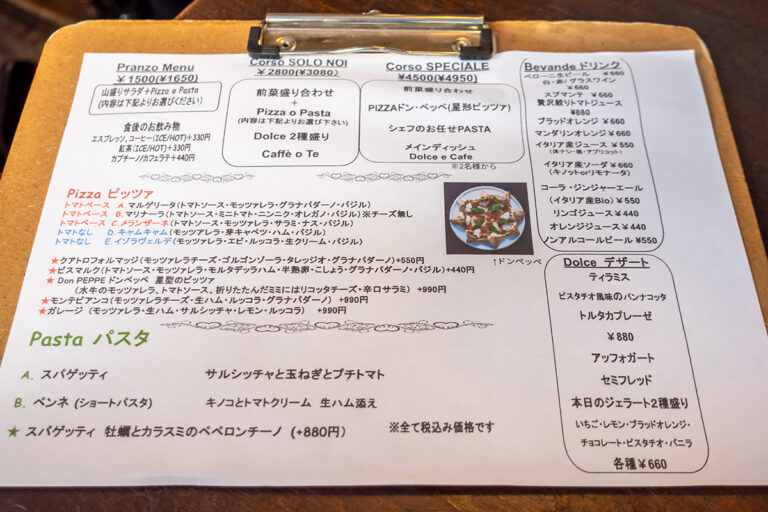 Pranzo Menu
￥1500(¥1650)
山盛りサラダ+Pizza o Pasta
(内容は下記よりお選びください)
食後のお飲み物
エスプレッソ、コーヒー(ICE/HOT)+330円
紅茶(ICE/HOT)+330円
カプチーノ/カフェラテ+440円
Corso SOLO NOI
￥2800(¥3080)
前菜盛り合わせ
+
Pizza o Pasta
(内容は下記よりお選び下さい)
Dolce 2種盛り
Caffè o Te
Corso SPECIALE
¥4500(¥4950)
前菜盛り合わせ
PIZZAドン・ペッペ(星形ピッツァ)
シェフのお任せPASTA
メインディッシュ
Dolce e Cafe
※2名様から
Bevande ドリンク
ペローニ生ビール ￥660
白・赤/グラスワイン
￥660
スプマンテ ￥660
贅沢絞りトマトジュース
¥880
ブラッドオレンジ ￥660
マンダリンオレンジ￥660
イタリア産ジュース￥550
(洋ナシ・桃・アプリコット)
イタリア産ソーダ ￥660
(キノットorリモナータ)
コーラ・ジンジャーエール
(イタリア産Bio) ￥550
リンゴジュース￥440
オレンジジュース￥440
ノンアルコールビール ¥550
Pizza ピッツァ
トマトベース A.マルゲリータ(トマトソース・モッツァレラ・グラナパダーノ・バジル)
トマトベース B.マリナーラ(トマトソース・ミニトマト・ニンニク・オレガノ・バジル)※チーズ無し
トマトベース C.メランザーネ(トマトソース・モッツァレラ・サラミ・ナス・バジル)
トマトなし D.キャムキャム(モッツァレラ・芽キャベツ・ハム・バジル)
トマトなし E.イゾラヴェルデ(モッツァレラ・エビ・ルッコラ・生クリーム・バジル)
↑ドンペッペ
★クアトロフォルマッジ(モッツァレラチーズ・ゴルゴンゾーラ・タレッジオ・グラナパダーノ)+550円
★ビスマルク(トマトソース・モッツァレラ・モルタデッラハム・半熟卵・こしょう・グラナパダーノ・バジル)+440円
★ Don PEPPE ドンペッペ 星型のピッツァ
(水牛のモッツァレラ、トマトソース、折りたたんだミミにはリコッタチーズ・辛口サラミ) +990円
★モンテビアンコ(モッツァレラチーズ・生ハム・ルッコラ・グラナパダーノ) +990円
★ガレージ (モッツァレラ・生ハム・サルシッチャ・レモン・ルッコラ) +990円
Pasta パスタ
A. スパゲッティ サルシッチャと玉ねぎとプチトマト
B. ペンネ (ショートパスタ) キノコとトマトクリーム 生ハム添え
★ スパゲッティ 牡蠣とカラスミのペペロンチーノ (+880円) ※全て税込み価格です
Dolce デザート
ティラミス
ピスタチオ風味のパンナコッタ
トルタカプレーゼ
￥880
アッフォガート
セミフレッド
本日のジェラート2種盛り
いちご・レモン・ブラッドオレンジ・
チョコレート・ピスタチオ・バニラ
各種￥660